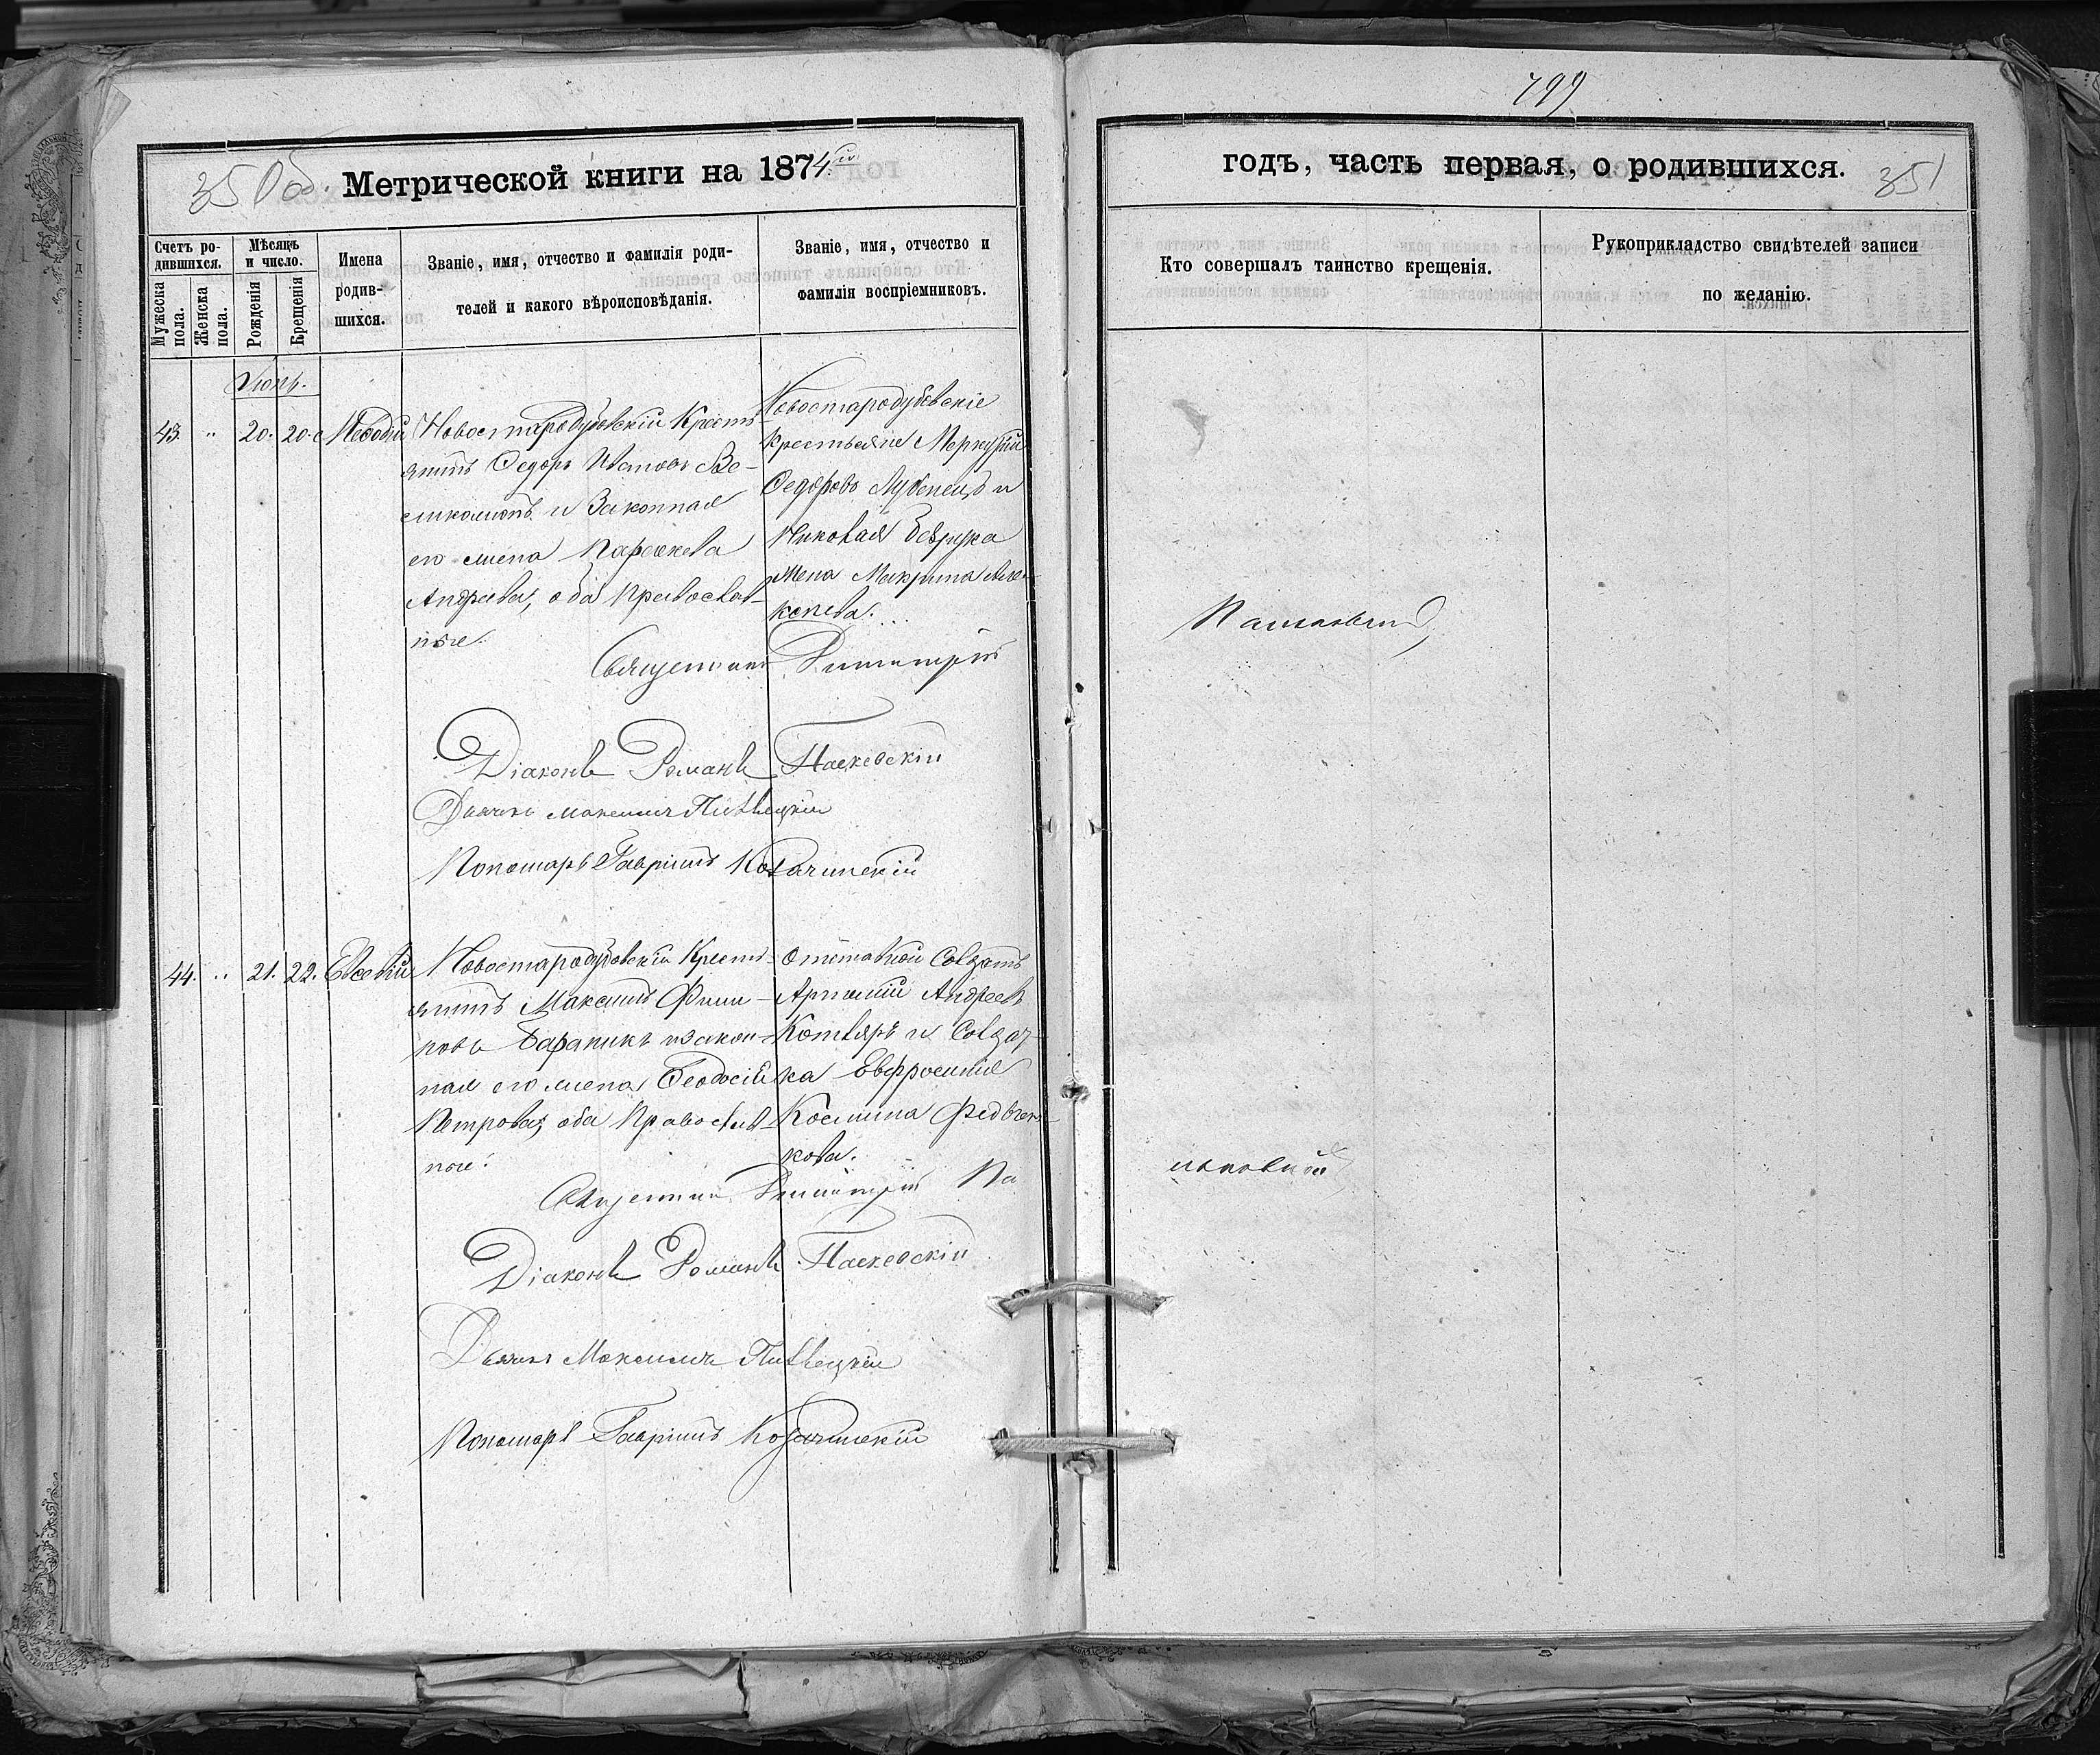 799
350 об.
Метрической книги на 1874й
годъ, часть первая, о родившихся.
351
Счетъ ро-
дившихся.
Мужеска
пола.
Женска
пола.
Мѣсяцъ
и число.
Рожденія
Крещенія
Имена
родив-
шихся.
Званіе, имя, отчество и фамилія роди-
телей и какого вѣроисповѣданія.
Званіе, имя, отчество и
фамилія воспріемниковъ.
Кто совершалъ таинство крещенія.
Рукоприкладство свидѣтелей записи
по желанію.
43. " 20. 20. Меѳодій
Новостародубовскій Кресть-
янинъ Ѳедоръ Ивановъ Ве-
и Законная
его жена Параскева
Андреева, оба Православ-
ные.
Новостародубовскіе
крестьяне Меркурій
Ѳедоровъ Лубенецъ и
Николая
жена Макрина
Священникъ Димитрій
Діаконъ Романъ Паскевскій
Дьячекъ Максимъ
Пономарь Гавріилъ
44. " 21. 22. Евсевій
Новостародубовскій Кресть-
янинъ Максимъ Фили-
повъ Бараникъ и закон-
ная его жена Ѳеодосія
Петрова, оба Православ-
ные.
Отставной Солдатъ
Артемій Андреевъ
Котляръ и Солдат-
ка Евфросинія
Космина
кова.
Священникъ Димитрій Па
Діаконъ Романъ Паскевскій
Дьячекъ Максимъ
Пономарь Гавріилъ